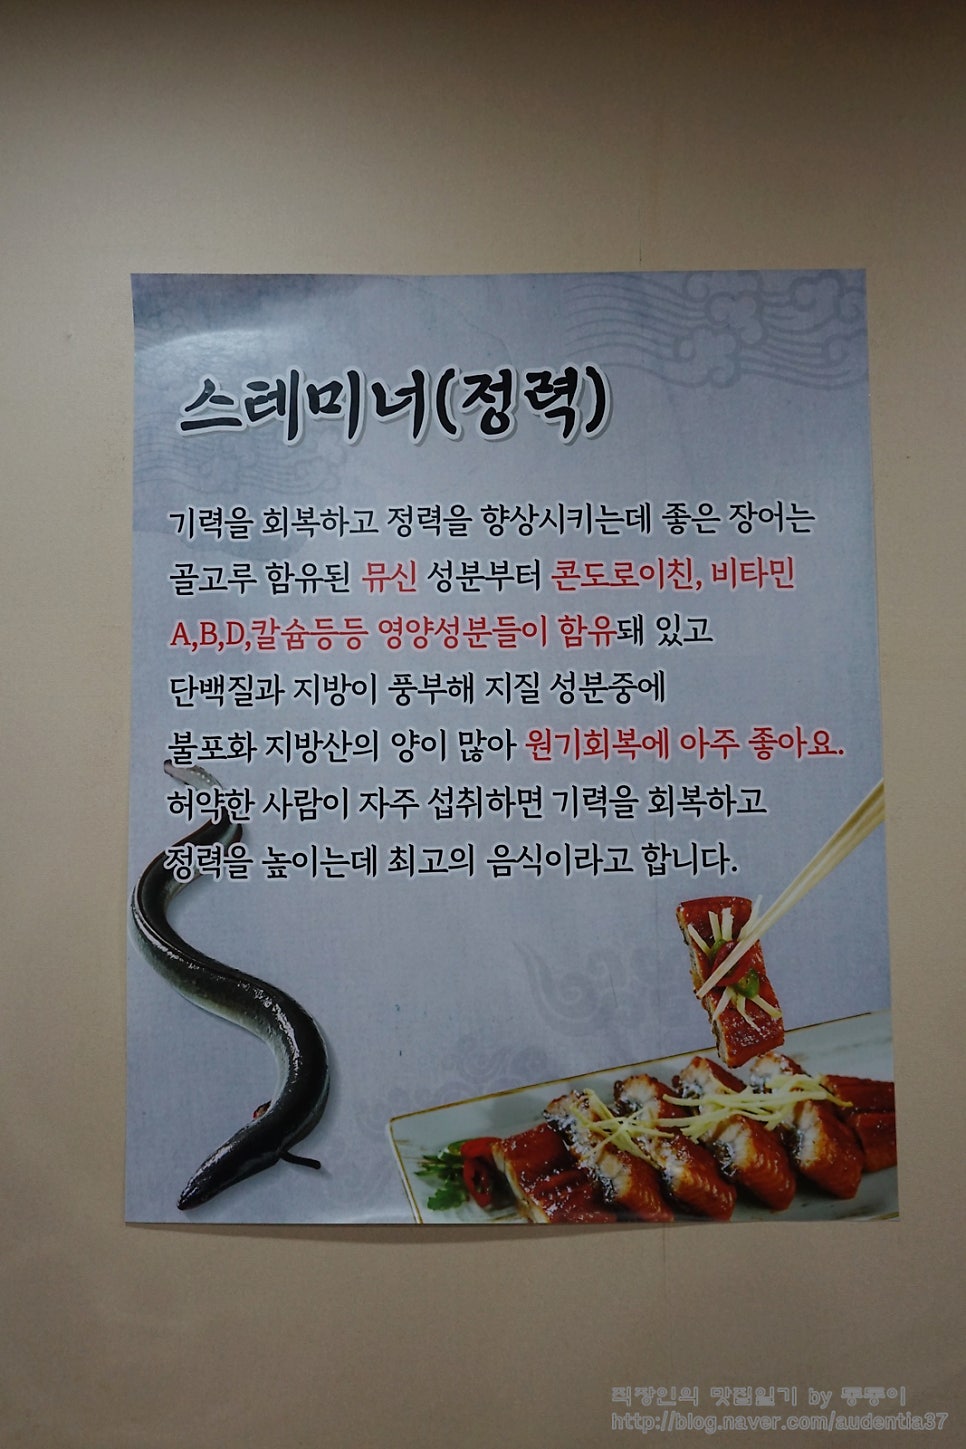 스테미너(정력)
기력을 회복하고 정력을 향상시키는데 좋은 장어는
골고루 함유된 뮤신 성분부터 콘도로이친, 비타민
A,B,D,칼슘등등 영양성분들이 함유돼 있고
단백질과 지방이 풍부해 지질 성분중에
불포화 지방산의 양이 많아 원기회복에 아주 좋아요.
허약한 사람이 자주 섭취하면 기력을 회복하고
정력을 높이는데 최고의 음식이라고 합니다.
직장인의 맛집일기 by 통통이
http://blog.naver.com/audentia37